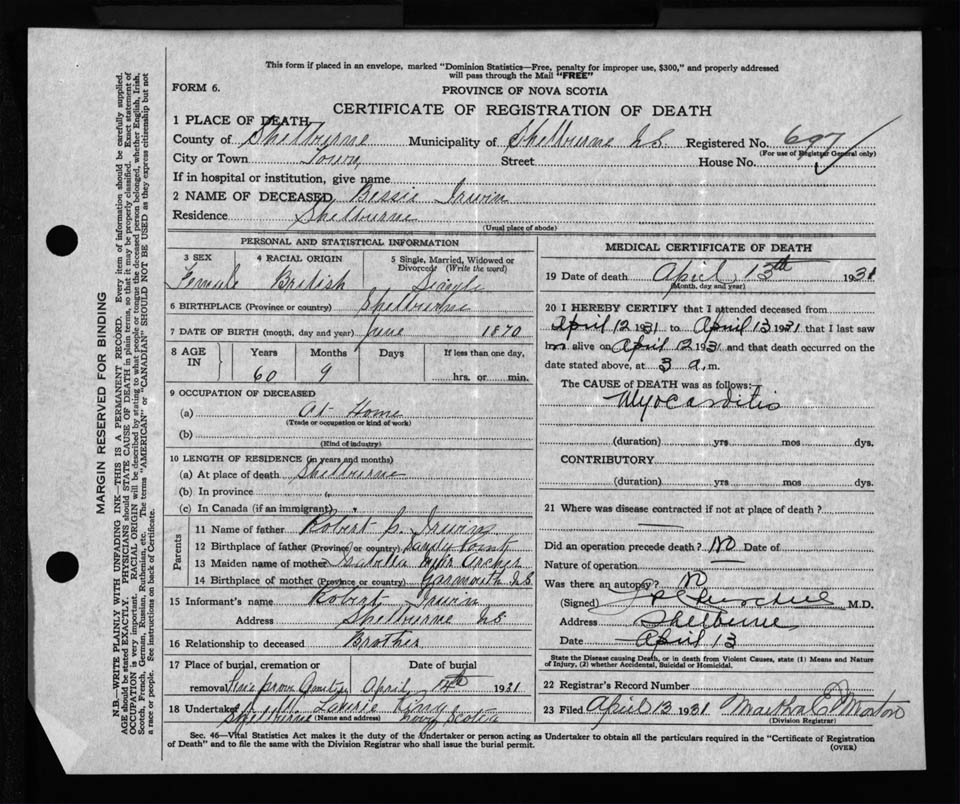 This form if placed in an envelope, marked "Dominion Statistics—Free, penalty for improper use, $300," and properly addressed
will pass through the Mail "FREE"
FORM 6.
PROVINCE OF NOVA SCOTIA
CERTIFICATE OF REGISTRATION OF DEATH
1 PLACE OF DEATH
County of Shelburne Municipality of Shelburne N.S. Registered No. 697
(For use of Registrar General only)
City or Town Town Street House No.
If in hospital or institution, give name
2 NAME OF DECEASED Bessie Irwin
Residence Shelburne
(Usual place of abode)
PERSONAL AND STATISTICAL INFORMATION
3 SEX 4 RACIAL ORIGIN 5 Single, Married, Widowed or
Divorced (Write the word)
Female British Single
6 BIRTHPLACE (Province or country) Shelburne
7 DATE OF BIRTH (month, day and year) June 1870
8 AGE IN Years Months Days If less than one day,
60 9 hrs. or min.
9 OCCUPATION OF DECEASED
(a) At Home
(Trade or occupation or kind of work)
(b)
(Kind of industry)
10 LENGTH OF RESIDENCE (in years and months)
(a) At place of death Shelburne
(b) In province
(c) In Canada (if an immigrant)
Parents
11 Name of father Robert Irwin
12 Birthplace of father (Province or country) Sandy Point
13 Maiden name of mother Archer
14 Birthplace of mother (Province or country) Yarmouth N.S.
15 Informant's name Robert Irwin
Address Shelburne N.S.
16 Relationship to deceased Brother
17 Place of burial, cremation or Date of burial
removal Cemetery April 1931
18 Undertaker King
Shelburne (Name and address) Nova Scotia
MEDICAL CERTIFICATE OF DEATH
19 Date of death April 13th 1931
(Month, day and year)
20 I HEREBY CERTIFY that I attended deceased from
April 12 1931 to April 13 1931 that I last saw
h alive on April 12 1931 and that death occurred on the
date stated above, at 3 a.m.
The CAUSE OF DEATH was as follows:
Myocarditis
(duration) yrs mos dys.
CONTRIBUTORY
(duration) yrs mos dys.
21 Where was disease contracted if not at place of death?
Did an operation precede death? No Date of
Nature of operation
Was there an autopsy? No
(Signed) M.D.
Address Shelburne
Date April 13
State the Disease causing Death, or in death from Violent Causes, state (1) Means and Nature
of Injury, (2) whether Accidental, Suicidal or Homicidal.
22 Registrar's Record Number
23 Filed April 13 1931 Martha E Morton
(Division Registrar)
Sec. 46—Vital Statistics Act makes it the duty of the Undertaker or person acting as Undertaker to obtain all the particulars required in the "Certificate of Registration
of Death" and to file the same with the Division Registrar who shall issue the burial permit.
(OVER)
MARGIN RESERVED FOR BINDING
N.B.—WRITE PLAINLY WITH UNFADING INK—THIS IS A PERMANENT RECORD. Every item of information should be carefully supplied.
AGE should be stated EXACTLY. PHYSICIANS should STATE CAUSE OF DEATH in plain terms, so that it may be properly classified. Exact statement of
OCCUPATION is very important. RACIAL ORIGIN will be described by stating to what people or tongue the deceased person belonged, whether English, Irish,
Scotch, French, German, Russian, Ruthenian, etc. The terms "AMERICAN" or "CANADIAN" SHOULD NOT BE USED as they express citizenship but not
a race or people. See instructions on back of Certificate.